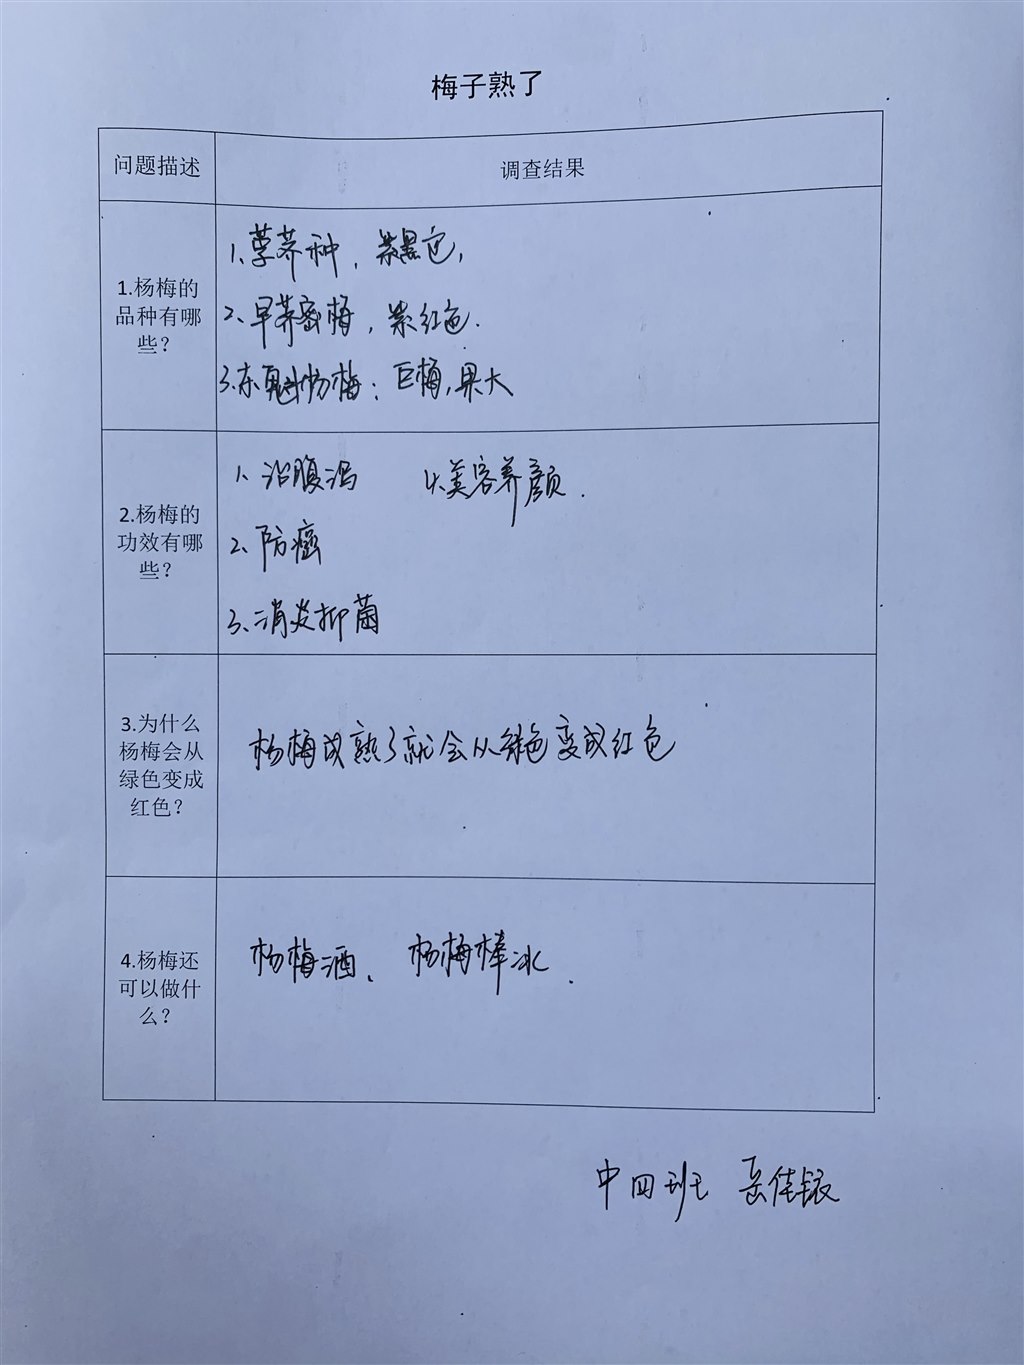 梅子熟了
问题描述
调查结果
1.杨梅的
品种有哪
些？
1、荸荠种，紫黑色，
2、早荠蜜梅，紫红色.
3.东魁杨梅：巨梅，果大
2.杨梅的
功效有哪
些？
1、治腹泻 4.美容养颜.
2、防癌
3、消炎抑菌
3.为什么
杨梅会从
绿色变成
红色？
杨梅成熟了就会从绿色变成红色
4.杨梅还
可以做什
么？
杨梅酒、杨梅棒冰.
中四班 岳佳